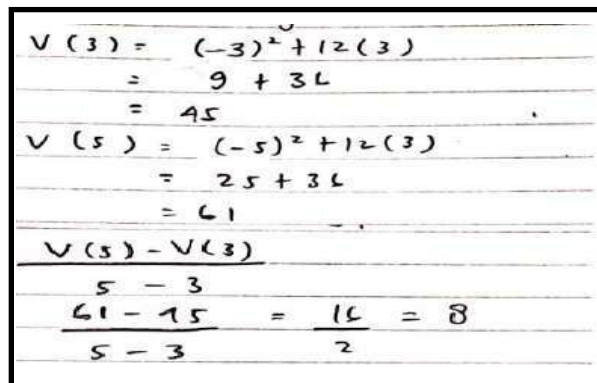 V (3) = (-3)² + 12(3)
= 9 + 36
= 45
V (5) = (-5)² + 12(3)
= 25 + 36
= 61
V(5) - V(3)
5 - 3
61 - 45 = 16 = 8
5 - 3 2